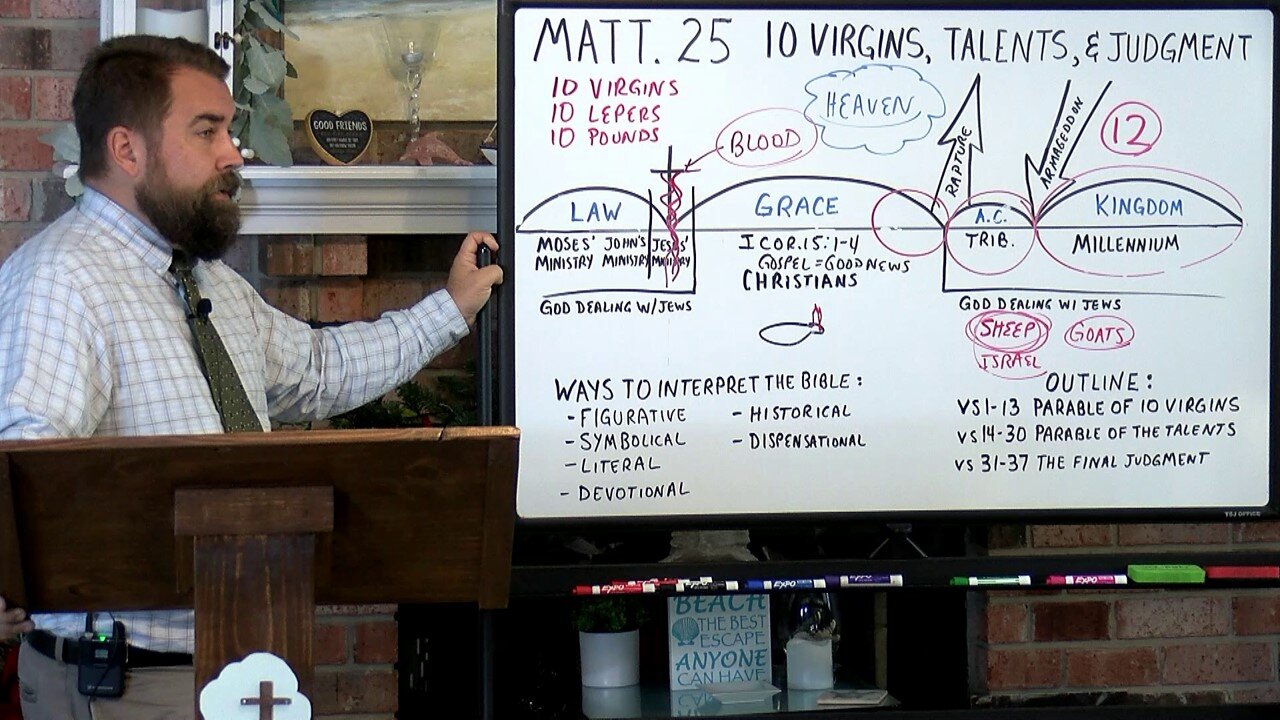 MATT. 25 10 VIRGINS, TALENTS, & JUDGMENT
10 VIRGINS
10 LEPERS
10 POUNDS
BLOOD
HEAVEN
RAPTURE
ARMAGEDDON
12
LAW
GRACE
A.C.
KINGDOM
MOSES' JOHN'S JESUS'
MINISTRY MINISTRY MINISTRY
I COR. 15:1-4
GOSPEL = GOOD NEWS
CHRISTIANS
TRIB.
MILLENNIUM
GOD DEALING W/ JEWS
GOD DEALING W/ JEWS
SHEEP GOATS
ISRAEL
WAYS TO INTERPRET THE BIBLE:
- FIGURATIVE
- SYMBOLICAL
- LITERAL
- DEVOTIONAL
- HISTORICAL
- DISPENSATIONAL
OUTLINE:
VS 1-13 PARABLE OF 10 VIRGINS
VS 14-30 PARABLE OF THE TALENTS
VS 31-37 THE FINAL JUDGMENT
TSJ OFFICE
GOOD FRIENDS
EXPO
EXPO
EXPO
EXPO
EXPO
BEACH
THE BEST
ESCAPE
ANYONE
CAN HAVE